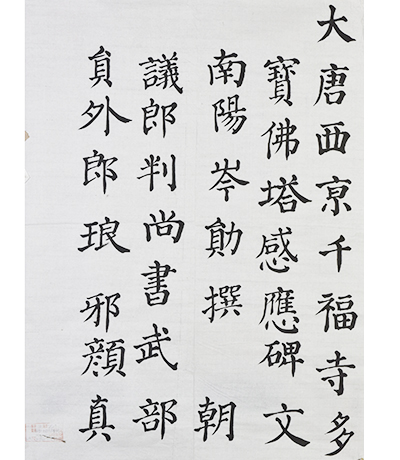 大唐西亰千福寺多
寶佛塔感應碑文
南陽岑勛撰 朝
議郎判尚書武部
貟外郎琅邪顔真